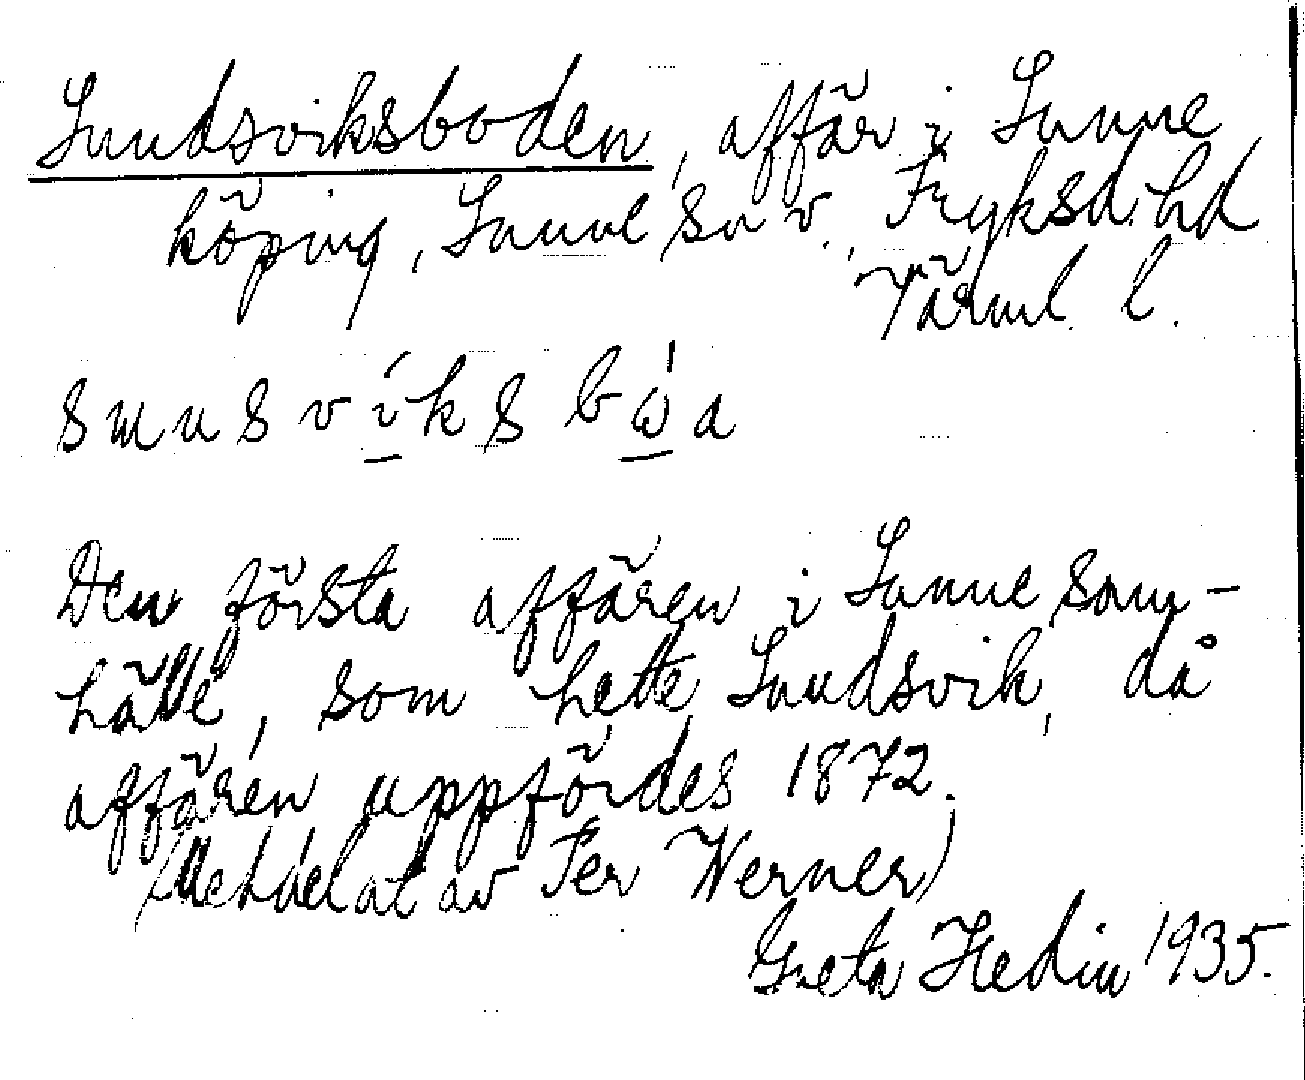 Sundsviksboden, affär i Sunne
köping, Sunne sn o. Fryksd. hd
Värml. l.
sunsvíksbẃa
Den första affären i Sunne sam-
hälle, som hette Sundsvik, då
affären uppfördes 1872.
(Meddelat av Per Werner)
Greta Hedin 1935.